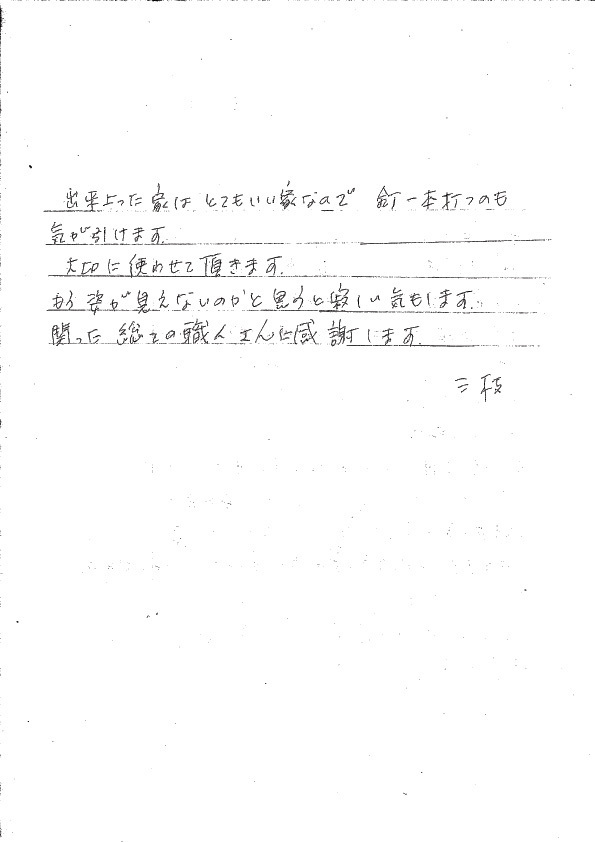 出来上った家はとてもいい家なので 釘一本打つのも
気が引けます.
大切に使わせて頂きます.
もう姿が見えないのかと思うと寂しい気もします.
関った総ての職人さんに感謝します.
三枝